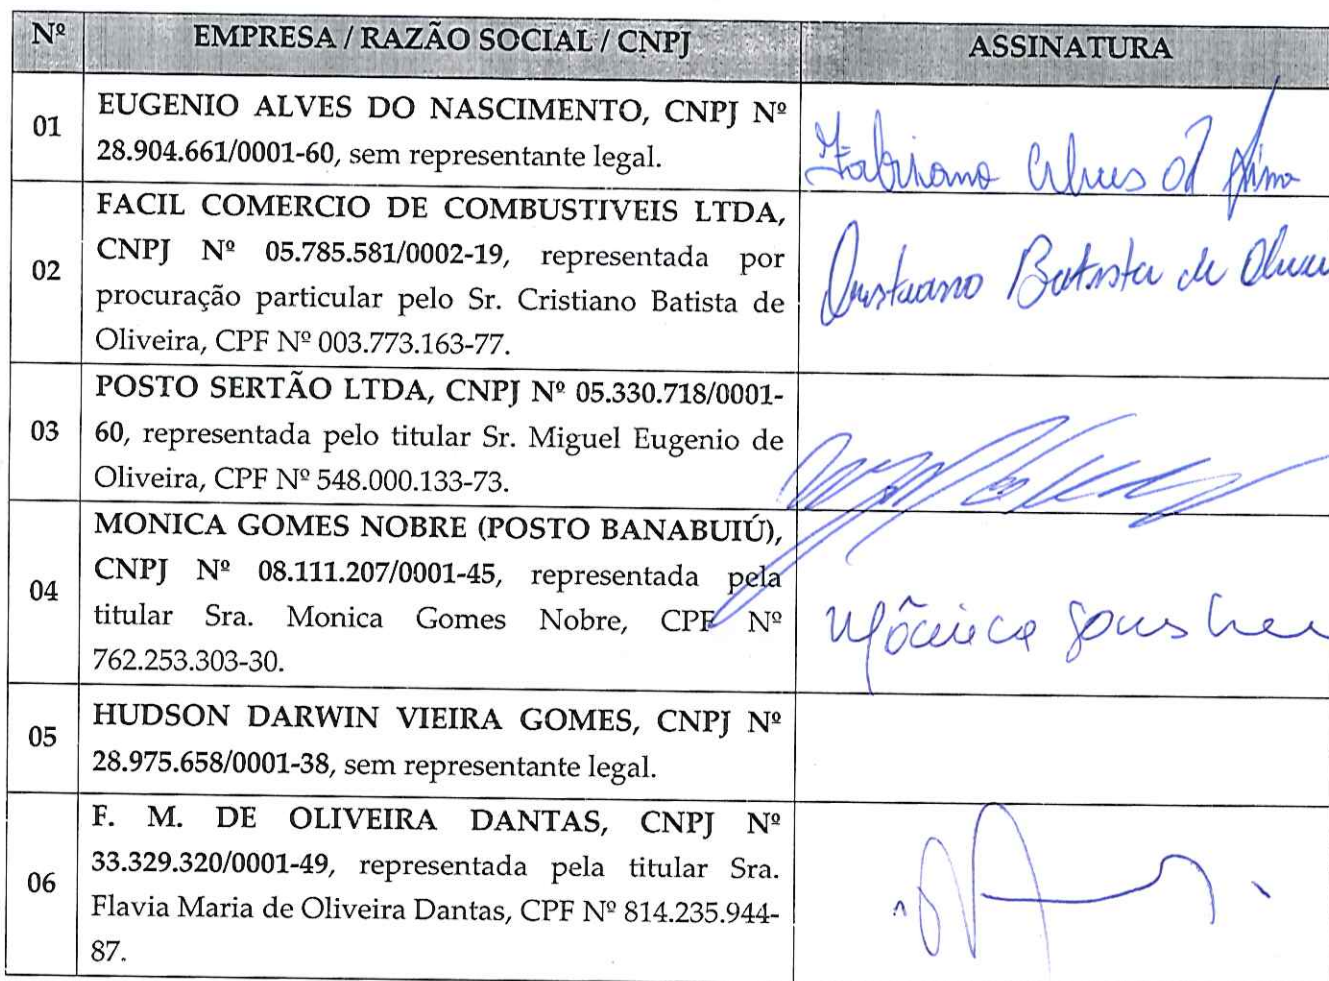 Nº EMPRESA / RAZÃO SOCIAL / CNPJ ASSINATURA
01
EUGENIO ALVES DO NASCIMENTO, CNPJ Nº
28.904.661/0001-60, sem representante legal.
Fabiano Alves d Lima
02
FACIL COMERCIO DE COMBUSTIVEIS LTDA,
CNPJ Nº 05.785.581/0002-19, representada por
procuração particular pelo Sr. Cristiano Batista de
Oliveira, CPF Nº 003.773.163-77.
Cristiano Batista de
03
POSTO SERTÃO LTDA, CNPJ Nº 05.330.718/0001-
60, representada pelo titular Sr. Miguel Eugenio de
Oliveira, CPF Nº 548.000.133-73.
04
MONICA GOMES NOBRE (POSTO BANABUIÚ),
CNPJ Nº 08.111.207/0001-45, representada pela
titular Sra. Monica Gomes Nobre, CPF Nº
762.253.303-30.
Mônica
05
HUDSON DARWIN VIEIRA GOMES, CNPJ Nº
28.975.658/0001-38, sem representante legal.
06
F. M. DE OLIVEIRA DANTAS, CNPJ Nº
33.329.320/0001-49, representada pela titular Sra.
Flavia Maria de Oliveira Dantas, CPF Nº 814.235.944-
87.